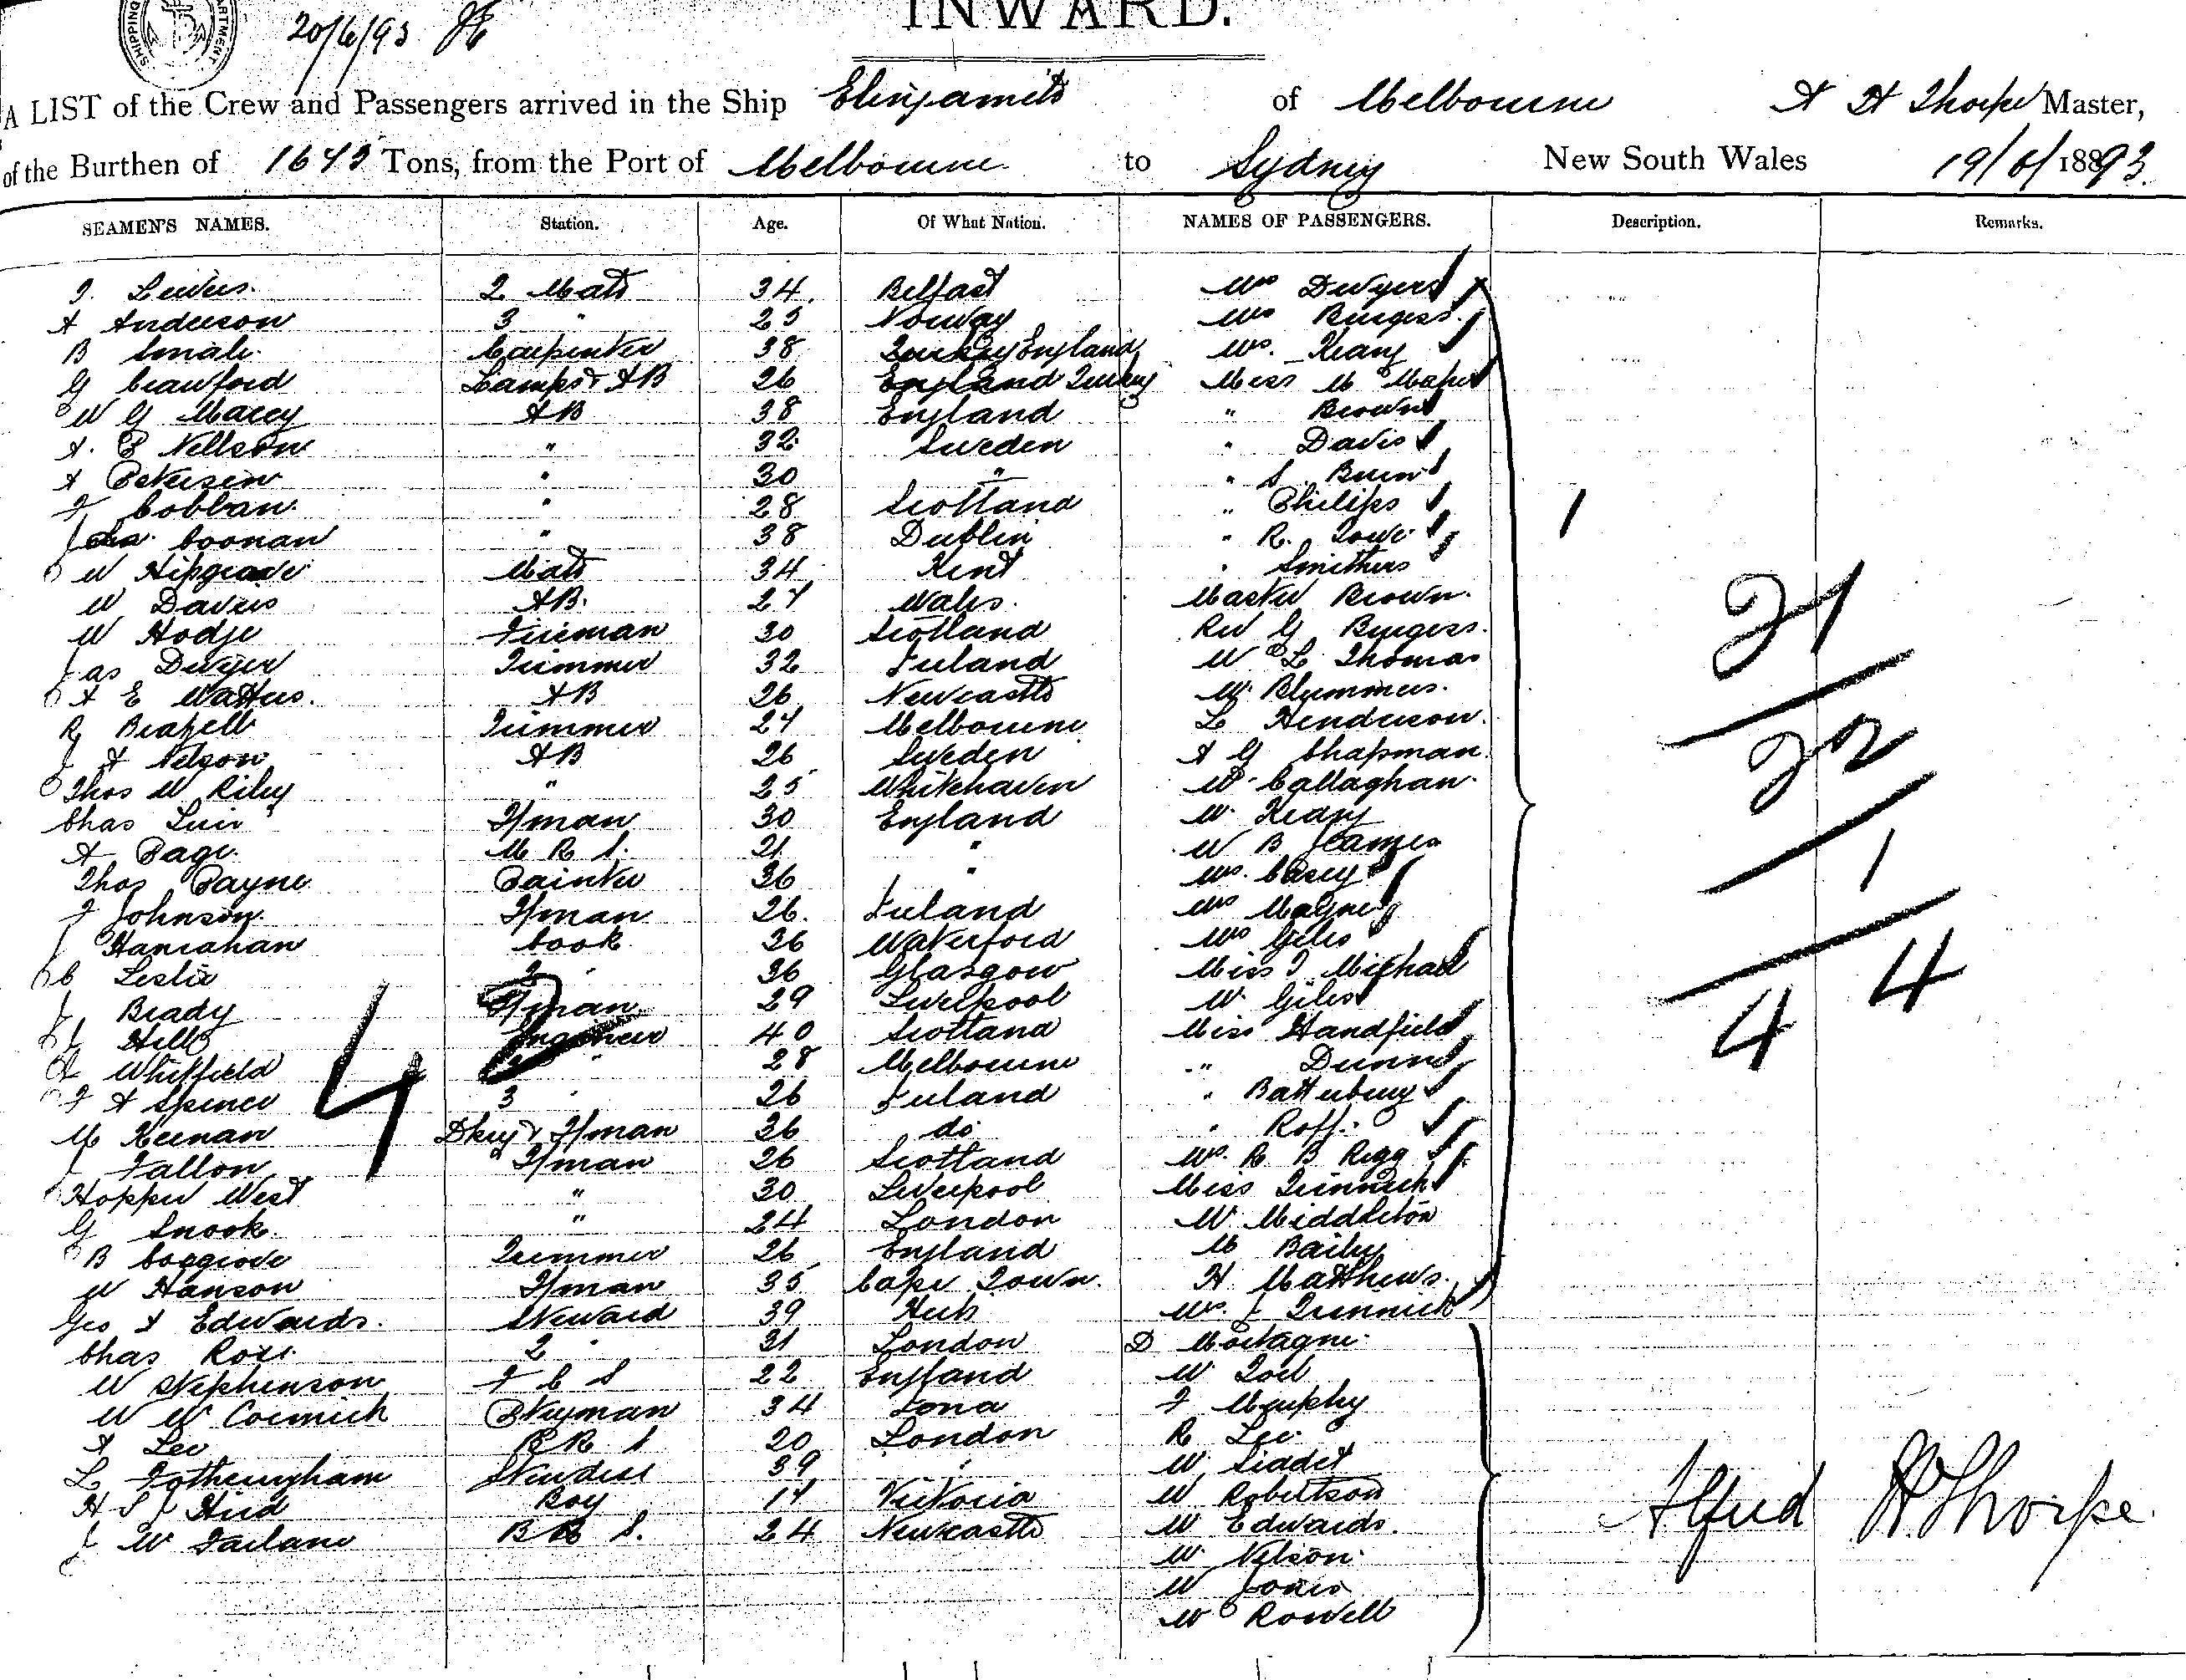 SHIPPING DEPARTMENT
20/6/93
INWARD.
A LIST of the Crew and Passengers arrived in the Ship Elingamite of Melbourne A H Thorpe Master,
of the Burthen of Tons, from the Port of Melbourne to Sydney New South Wales 19/6/1893
SEAMEN'S NAMES. Station. Age. Of What Nation. NAMES OF PASSENGERS. Description. Remarks.
2 Mate 34 Belfast Mrs Dwyer
A Anderson 3 " 25 Norway Mrs Burgess
B Smale Carpenter 38 Turkey England Mrs. Keary
G Crawford Lamps & AB 26 England Turkey Miss M
W G Macey AB 38 England " Brown
A. E Nellson " 32 Sweden " Davis
A Petersen " 30 " " S
F Cobban " 28 Scotland " Philips
Coonan " 38 Dublin " R. Lowe 1
W Hipgrave Mate 34 Kent " Smithers
W Davies AB. 27 Wales Master Brown
W Hodge Fireman 30 Scotland Rev G Burgess 31
Jas Dwyer Trimmer 32 Ireland W L Thomas
A E Watters AB 26 Newcastle W. Plummer
R Brazell Trimmer 27 Melbourne L Henderson
J A Nelson AB 26 Sweden A G Chapman 32
Thos W Riley " 25 Whitehaven W. Callaghan
Chas F/man 30 England W. Keary
A Page M R S. 21 " W B James 1
Thos Payne Painter 36 " Mrs. Casey
F Johnson F/man 26 Ireland Mrs Mayne
J Hanrahan Cook 36 Waterford Mrs Giles
C Leslie 2 " 36 Glasgow Miss Michael 4
J Brady F/man 29 Liverpool W. Giles
J Hill Engineer 40 Scotland Miss Handfield 4
Whiffield " 28 Melbourne " Dunn
F A Spence 3 " 26 Ireland " Battenbury
4
M Keenan Dkey & F/man 36 do " Roff
J Fallon F/man 26 Scotland Mrs. R B Rigg
Hopper West " 30 Liverpool Miss Trinnick
G Snook " 24 London W Middleton
B Cosgrove Trimmer 26 England M Baily
W Hanson F/man 35 Cape Town H. Matthews
Geo A Edwards Steward 39 Mrs. J Trinnick
Chas Rose 2 " 31 London D Mortagne
W Stephenson F C S 22 England W
W W Cormick P/tryman 34 Iona F Murphy
A Lee B R S 20 London R Lee
L Fotheringham Stewdess 39 " W. Liadet
H S J Hird Boy 17 Victoria W Robertson Alfred H Thorpe
J W Farlane B R S. 24 Newcastle W Edwards
W. Nelson
W Jones
W Rowell